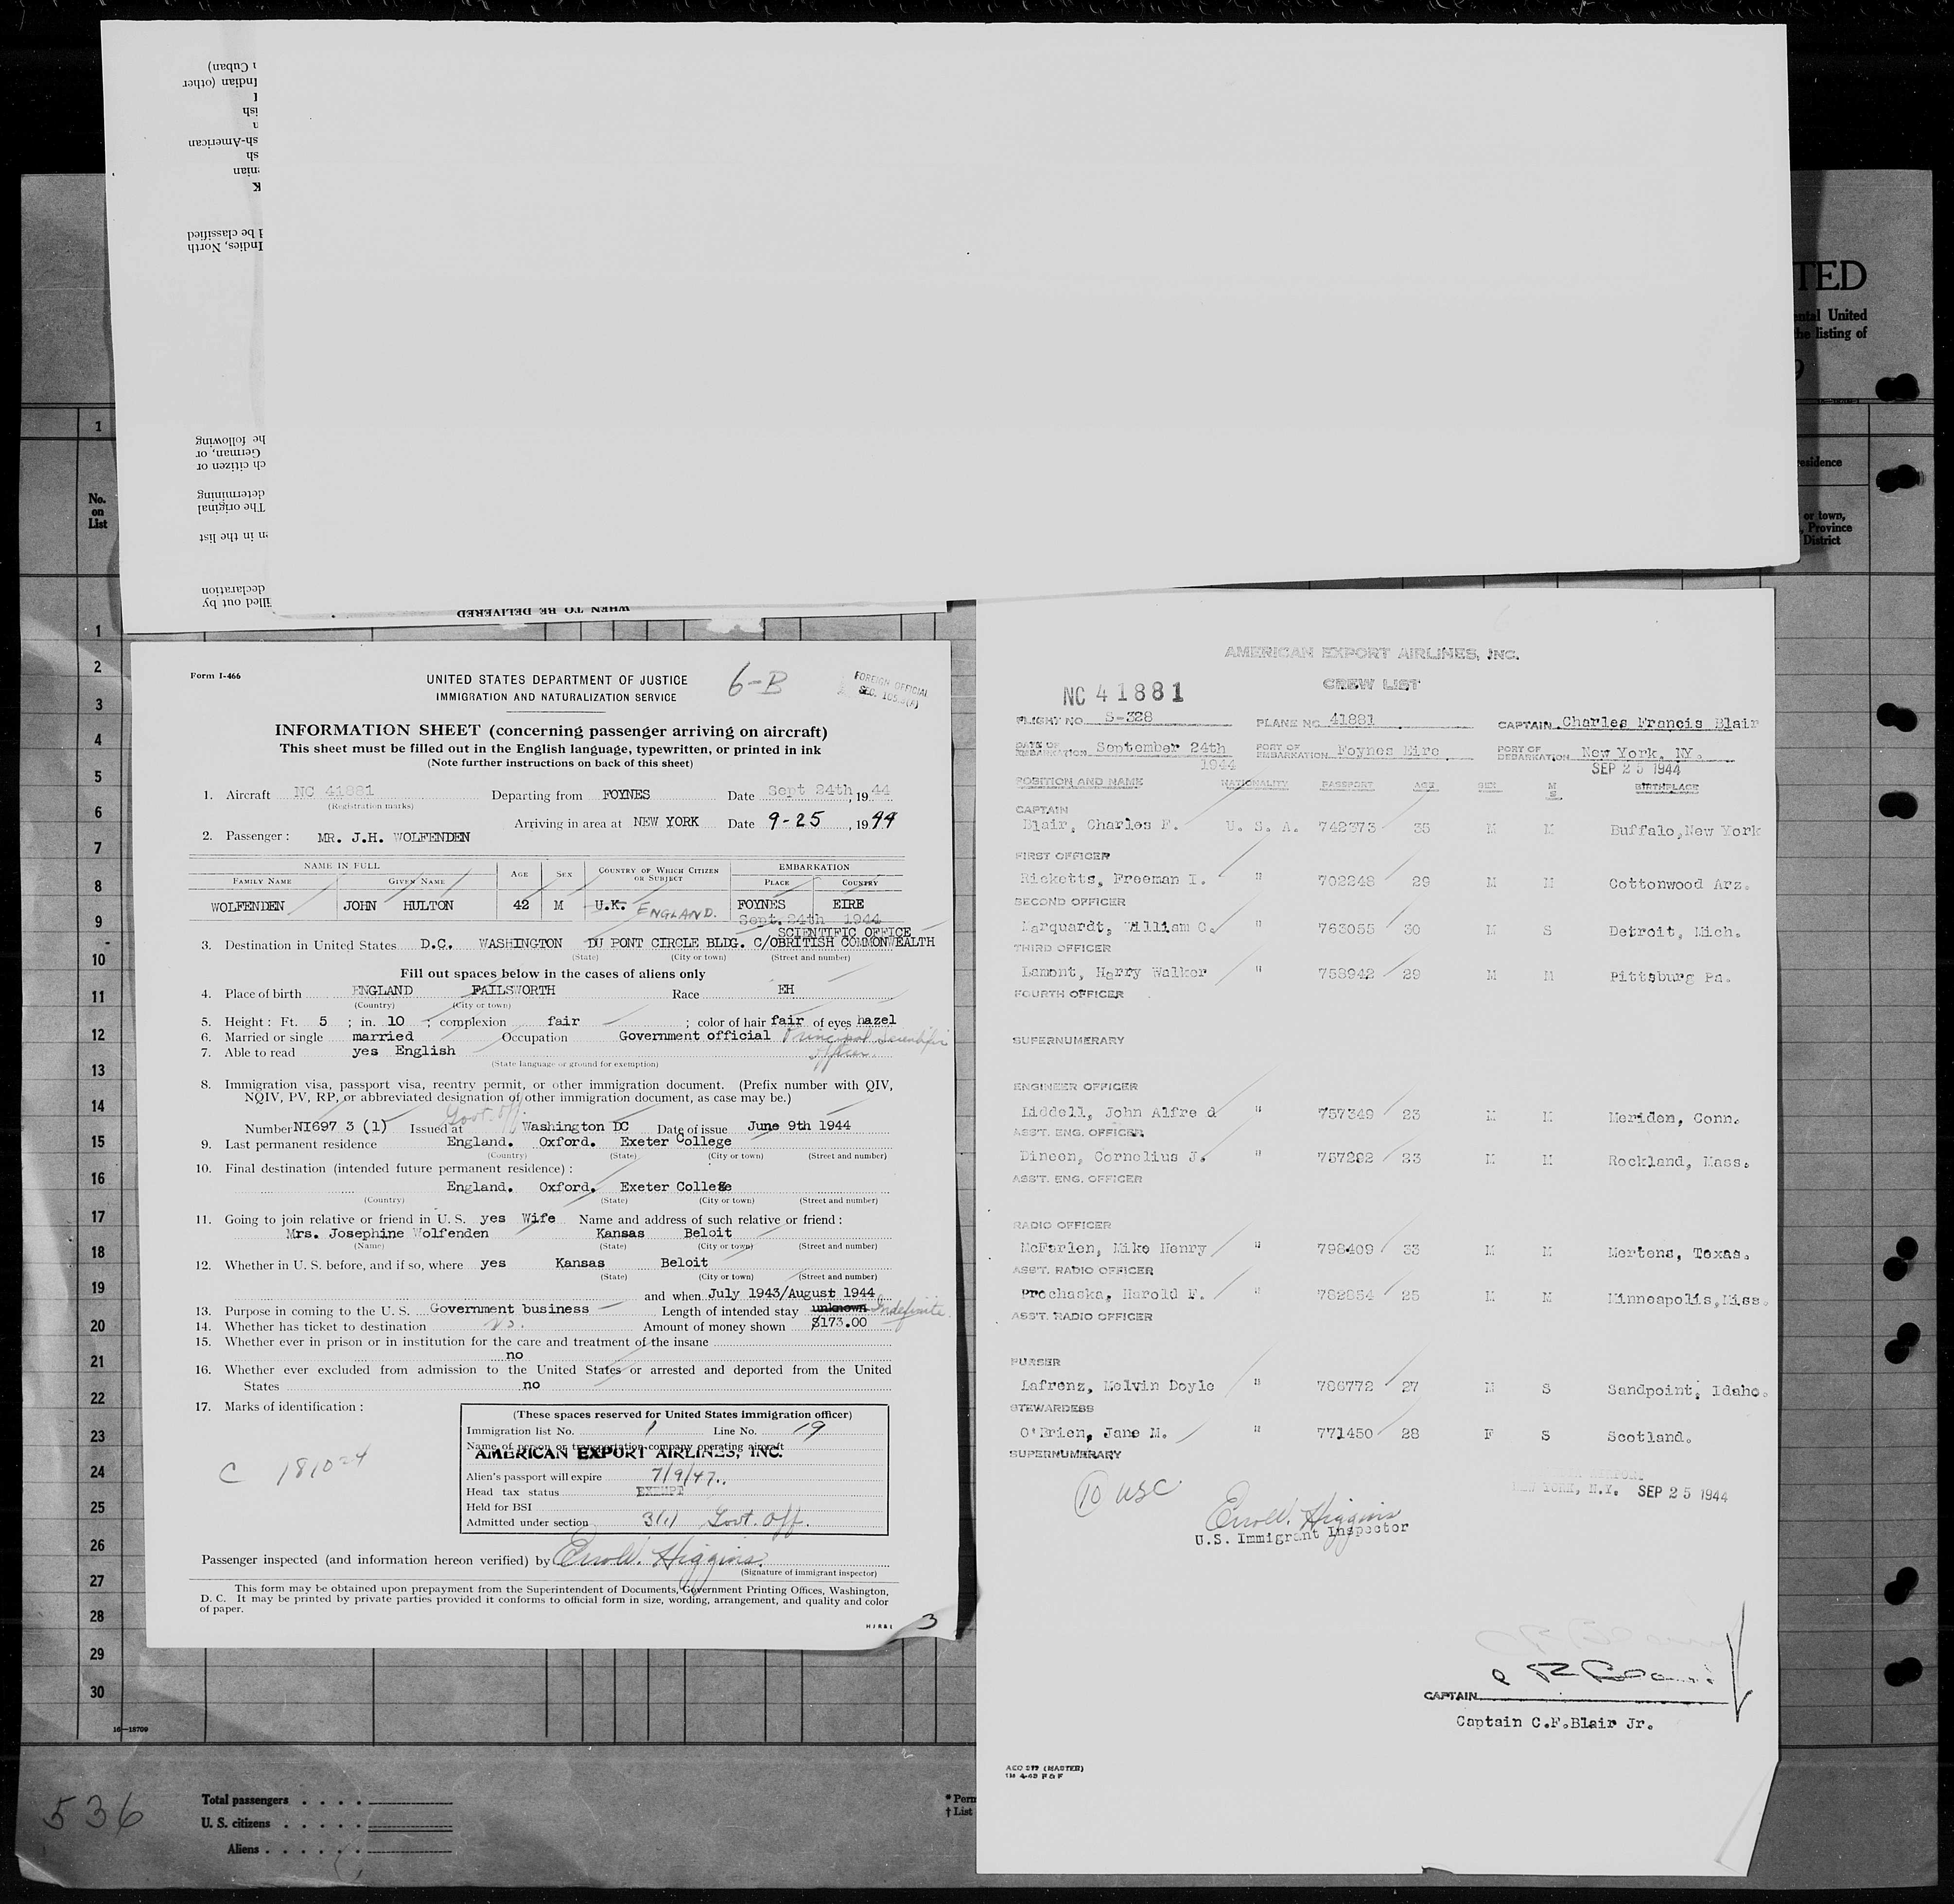 ı Cuban)
Indian (other
sh-American
sh
K
d be classified
Indies, North
he following
German, or
ch citizen or
determining
The original
n in the list
declaration
illed out by
WHEN TO BE DELIVERED
TED
ental United
the listing of
9
esidence
or town,
, Province
District
1
No.
on
List
1
2
3
4
5
6
7
8
9
10
11
12
13
14
15
16
17
18
19
20
21
22
23
24
25
26
27
28
29
30
16—18709
Form I-466
UNITED STATES DEPARTMENT OF JUSTICE
IMMIGRATION AND NATURALIZATION SERVICE
6-B
FOREIGN OFFICIAL
INFORMATION SHEET (concerning passenger arriving on aircraft)
This sheet must be filled out in the English language, typewritten, or printed in ink
(Note further instructions on back of this sheet)
1. Aircraft NC 41881 Departing from FOYNES Date Sept 24th, 19 44
(Registration marks)
Arriving in area at NEW YORK Date 9-25, 19 44
2. Passenger: MR. J.H. WOLFENDEN
NAME IN FULL AGE SEX COUNTRY OF WHICH CITIZEN OR SUBJECT EMBARKATION
FAMILY NAME GIVEN NAME PLACE COUNTRY
WOLFENDEN JOHN HULTON 42 M U.K. ENGLAND. FOYNES EIRE
Sept. 24th 1944
SCIENTIFIC OFFICE
3. Destination in United States D.C. WASHINGTON DU PONT CIRCLE BLDG. C/OBRITISH COMMONWEALTH
(State) (City or town) (Street and number)
Fill out spaces below in the cases of aliens only
4. Place of birth ENGLAND FAILSWORTH Race EH
(Country) (City or town)
5. Height: Ft. 5 ; in. 10 ; complexion fair ; color of hair fair of eyes hazel
6. Married or single married Occupation Government official Principal Scientific
Officer.
7. Able to read yes English
(State language or ground for exemption)
8. Immigration visa, passport visa, reentry permit, or other immigration document. (Prefix number with QIV,
NQIV, PV, RP, or abbreviated designation of other immigration document, as case may be.)
Govt. Off.
Number NI697 3 (1) Issued at Washington DC Date of issue June 9th 1944
9. Last permanent residence England. Oxford. Exeter College
(Country) (State) (City or town) (Street and number)
10. Final destination (intended future permanent residence):
England. Oxford. Exeter College
(Country) (State) (City or town) (Street and number)
11. Going to join relative or friend in U. S. yes Wife Name and address of such relative or friend:
Mrs. Josephine Wolfenden Kansas Beloit
(Name) (State) (City or town) (Street and number)
12. Whether in U. S. before, and if so, where yes Kansas Beloit
(State) (City or town) (Street and number)
and when July 1943/August 1944
13. Purpose in coming to the U. S. Government business Length of intended stay unknown Indefinite
14. Whether has ticket to destination Amount of money shown $173.00
15. Whether ever in prison or in institution for the care and treatment of the insane
no
16. Whether ever excluded from admission to the United States or arrested and deported from the United
States no
17. Marks of identification:
C 181024
(These spaces reserved for United States immigration officer)
Immigration list No. 1 Line No. 19
Name of person or transportation company operating aircraft
AMERICAN EXPORT AIRLINES, INC.
Alien's passport will expire 7/9/47.
Head tax status EXEMPT
Held for BSI
Admitted under section 3(1) Govt. Off.
Passenger inspected (and information hereon verified) by Errol W. Higgins
(Signature of immigrant inspector)
This form may be obtained upon prepayment from the Superintendent of Documents, Government Printing Offices, Washington,
D. C. It may be printed by private parties provided it conforms to official form in size, wording, arrangement, and quality and color
of paper.
3
AMERICAN EXPORT AIRLINES, INC.
CREW LIST
NC 41881
FLIGHT NO. S-328 PLANE NO. 41881 CAPTAIN Charles Francis Blair
DATE OF EMBARKATION September 24th 1944 PORT OF EMBARKATION Foynes Eire PORT OF DEBARKATION New York, NY.
SEP 25 1944
POSITION AND NAME NATIONALITY PASSPORT AGE SEX M S BIRTHPLACE
CAPTAIN
Blair, Charles F. U. S. A. 742373 35 M M Buffalo,New York
FIRST OFFICER
Ricketts, Freeman I. " 702248 29 M M Cottonwood Arz.
SECOND OFFICER
Marquardt, William C. " 763055 30 M S Detroit, Mich.
THIRD OFFICER
Lamont, Harry Walker " 758942 29 M M Pittsburg Pa.
FOURTH OFFICER
SUPERNUMERARY
ENGINEER OFFICER
Liddell, John Alfre d " 757349 23 M M Meriden, Conn.
ASS'T. ENG. OFFICER
Dineen, Cornelius J. " 757282 33 M M Rockland, Mass.
ASS'T. ENG. OFFICER
RADIO OFFICER
McFarlen, Mike Henry " 798409 33 M M Mertens, Texas.
ASS'T. RADIO OFFICER
Prochaska, Harold F. " 782854 25 M M Minneapolis,Miss.
ASS'T. RADIO OFFICER
PURSER
Lafrenz, Melvin Doyle " 786772 27 M S Sandpoint, Idaho.
STEWARDESS
O'Brien, Jane M. " 771450 28 F S Scotland.
SUPERNUMERARY
10 USC
NEW YORK, N.Y. SEP 25 1944
Errol W. Higgins
U.S. Immigrant Inspector
CAPTAIN
Captain C.F.Blair Jr.
ACO 277 (MASTER)
536
Total passengers
U. S. citizens
Aliens
* Perm
† List